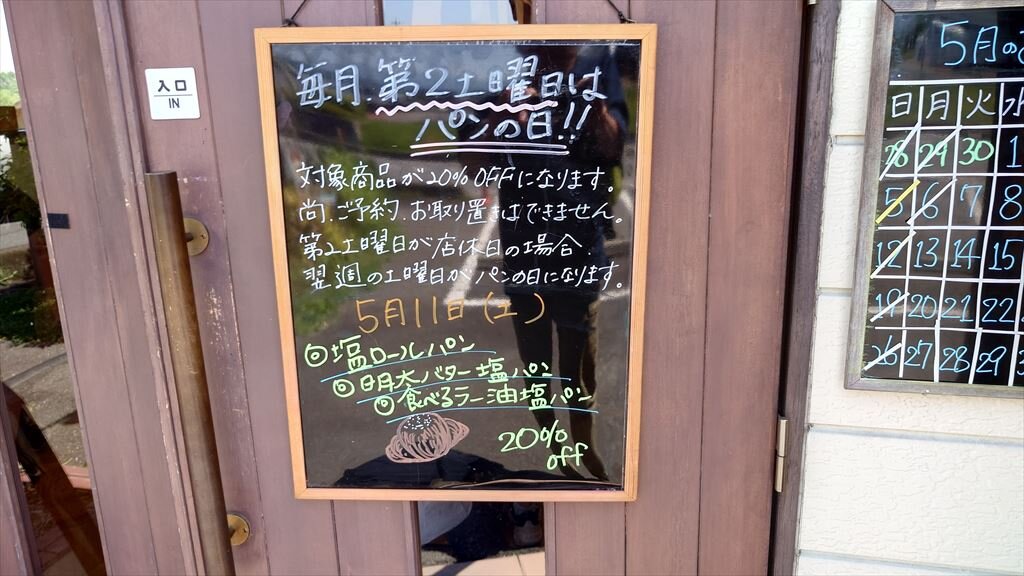 入口
IN
毎月.第2土曜日は
パンの日!!
対象商品が20% OFFになります。
尚.ご予約.お取り置きはできません。
第2土曜日が店休日の場合
翌週の土曜日がパンの日になります。
5月11日(土)
◎塩ロールパン
◎明太バター塩パン
◎食べるラー油塩パン
20%
off
5月の
日 月 火 水
28 29 30 1
5 6 7 8
12 13 14 15
19 20 21 22
26 27 28 29